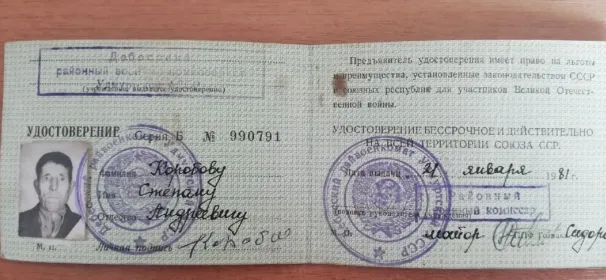 Дебесский
районный военный комиссариат
(учреждение, выдавшее удостоверение)
УДОСТОВЕРЕНИЕ Серия Б № 990791
Фамилия Коробову
Имя Степану
Отчество Андреевичу
М. П. Личная подпись
Предъявитель удостоверения имеет право на льготы
и преимущества, установленные законодательством СССР
и союзных республик для участников Великой Отечест-
венной войны.
УДОСТОВЕРЕНИЕ БЕССРОЧНОЕ И ДЕЙСТВИТЕЛЬНО
НА ВСЕЙ ТЕРРИТОРИИ СОЮЗА ССР.
Дата выдачи января 1981г.
Районный
военный комиссар
М. П. майор Сидоро